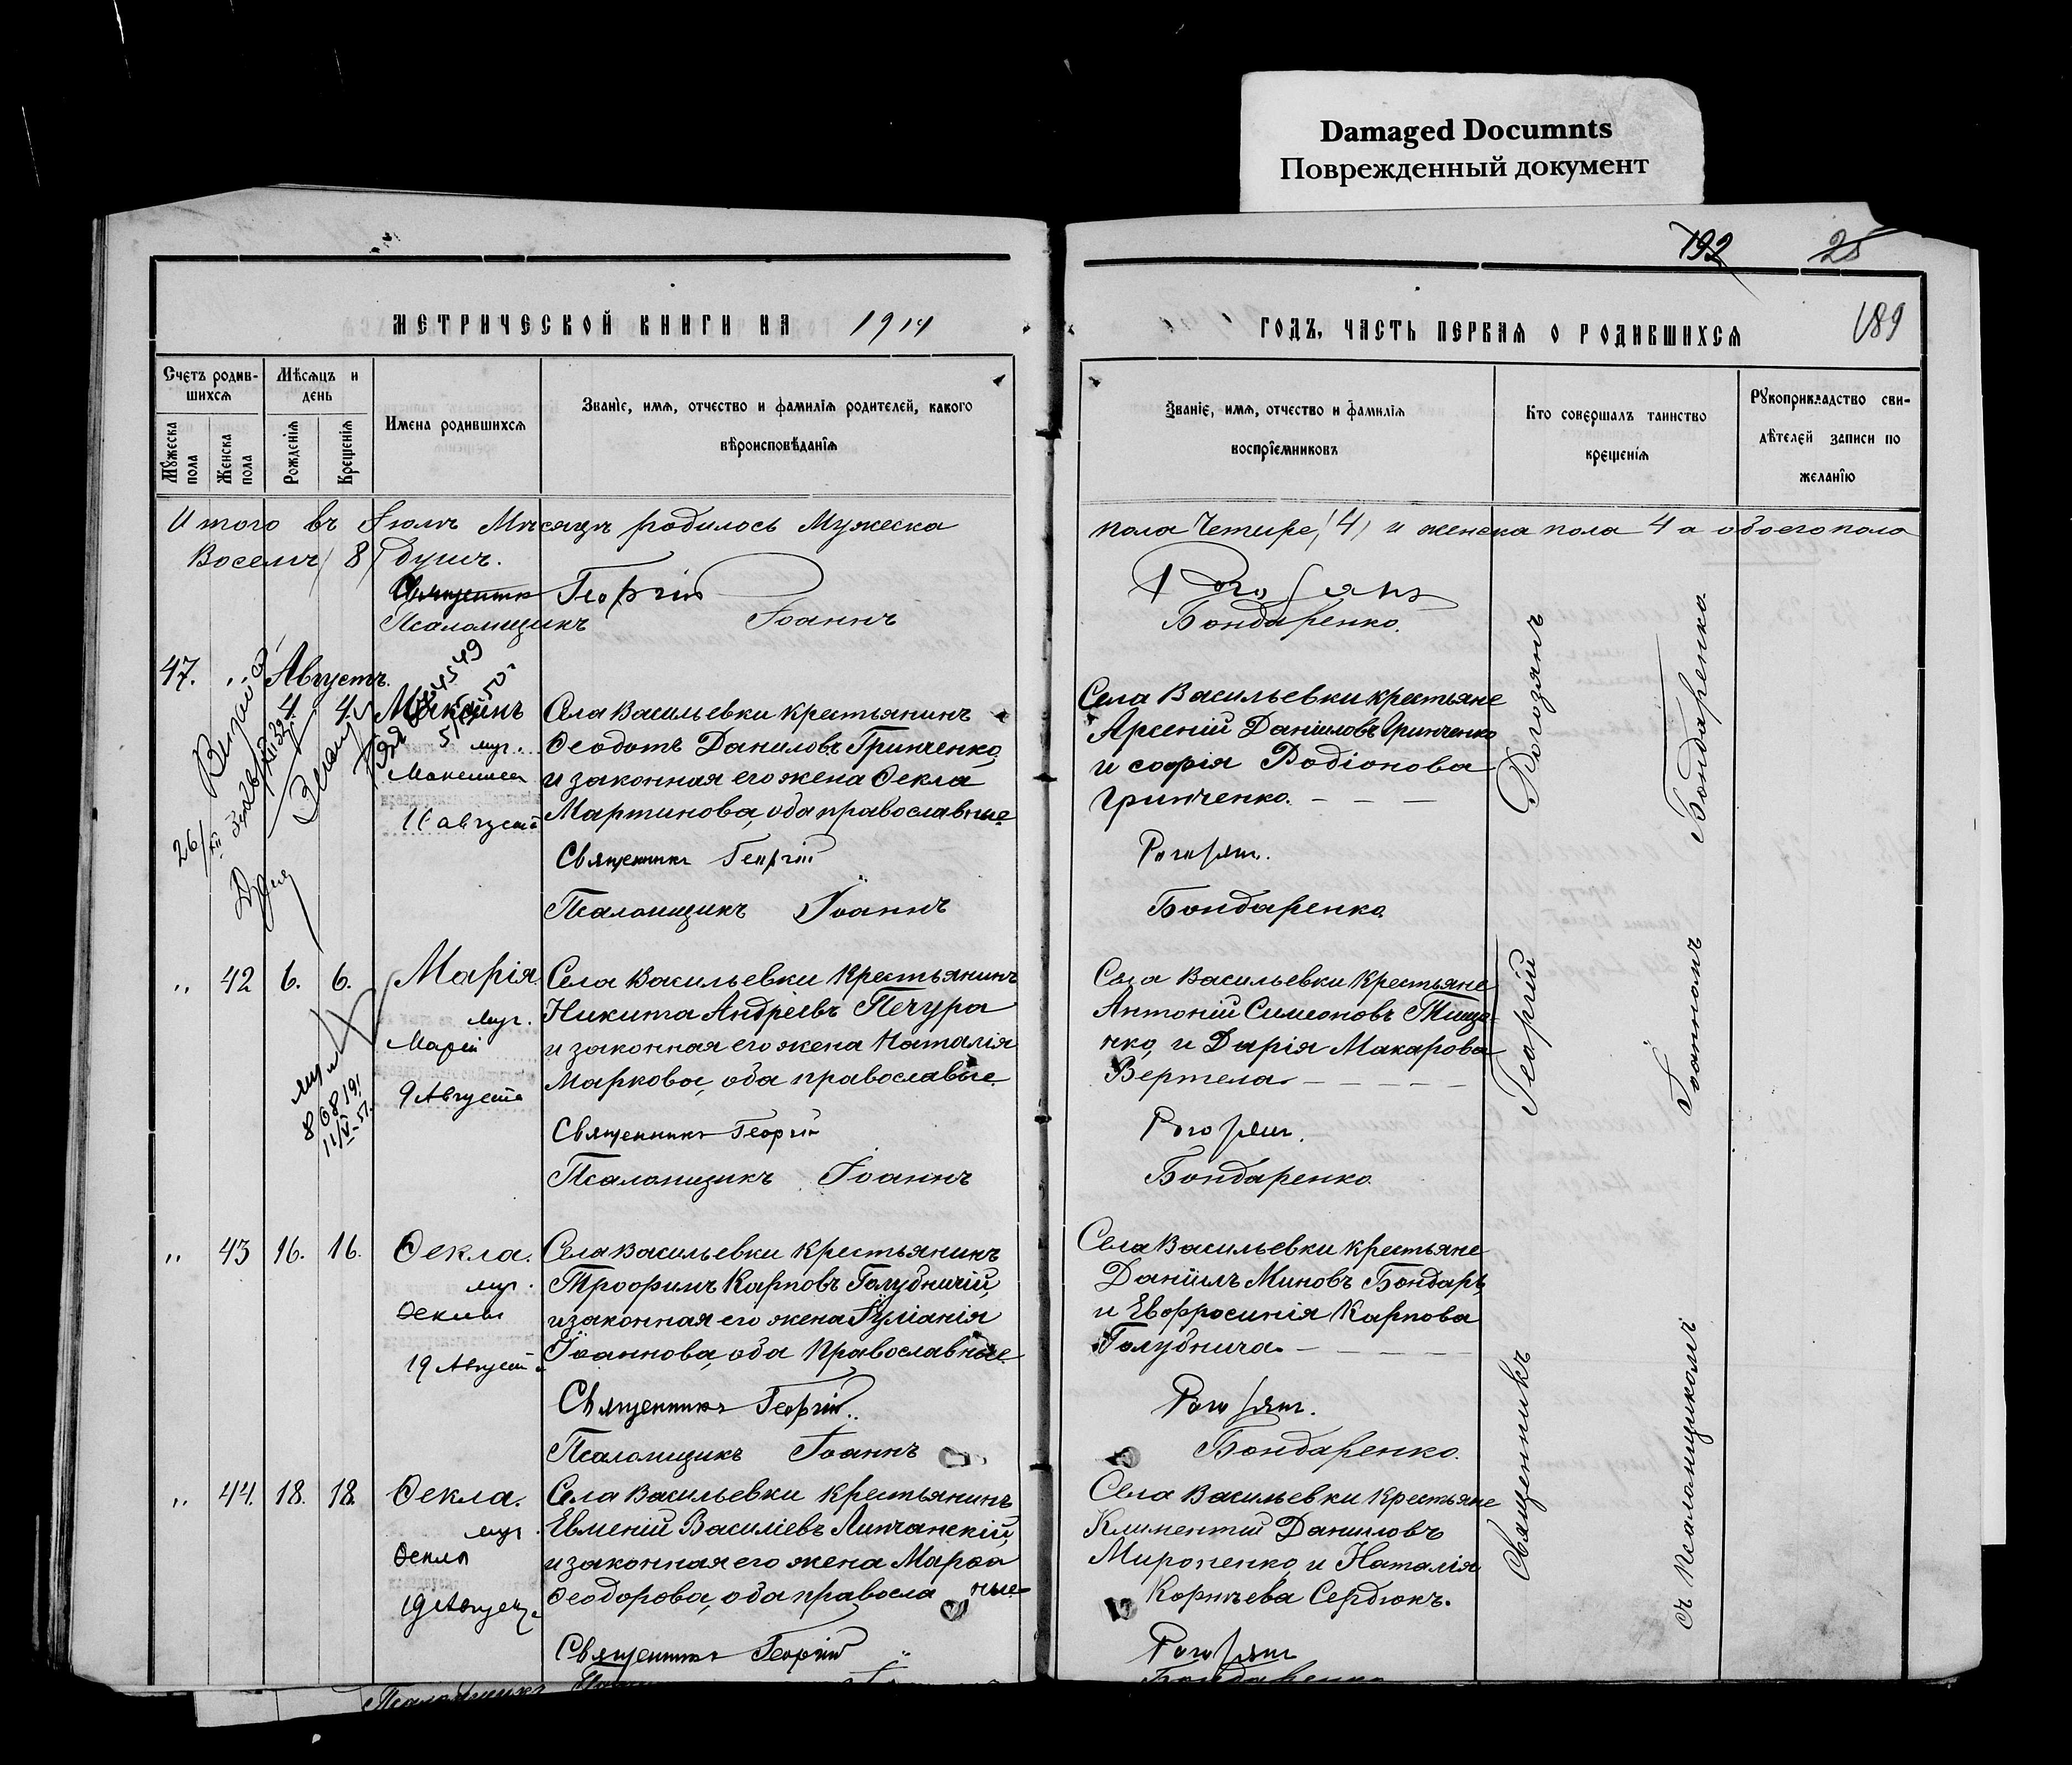 Damaged Documnts
Поврежденный документ
192 25
189
МЕТРИЧЕСКОЙ КНИГИ НА 1914
ГОДЪ, ЧАСТЬ ПЕРВАЯ О РОДИВШИХСЯ
Счетъ родив-
шихся
Мѣсяцъ и
день
Мужеска
пола
Женска
пола
Рожденія
Крещенія
Имена родившихся
Званіе, имя, отчество и фамилія родителей, какого
вѣроисповѣданія
Званіе, имя, отчество и фамилія
воспріемниковъ
Кто совершалъ таинство
крещенія
Рукоприкладство сви-
дѣтелей записи по
желанію
Итого въ Іюлѣ Мѣсяцѣ родилось Мужеска
пола Четире (4) и женска пола 4 а обоего пола
Восемъ (8) душъ.
Священникъ Георгій
Рогозянъ
Псаломщикъ Іоаннъ
Бондаренко.
47. „ Августъ.
4 4.
муч.
11 августа
Села Васильевки крестьянинъ
Ѳеодотъ Даниловъ Гринченко,
и законная его жена Ѳекла
Мартинова, оба православные
Священникъ Георгій
Псаломщикъ Іоаннъ
Села Васильевки крестьяне
Арсеній Даниловъ Гринченко
и Софія Родіонова
Гринченко.
Рогозянъ.
Бондаренко
„ 42 6. 6. Марія.
муч.
Маріи
9 Августа
868191
11/V-51.
Села Васильевки крестьянинъ
Никита Андріевъ Печура
и законная его жена Наталія
Маркова, оба православые
Священникъ Георгій
Псаломщикъ Іоаннъ
Села Васильевки крестьяне
Антоній Симеоновъ Тище-
нко, и Дарія Макарова
Вертела.
Рогозянъ.
Бондаренко
„ 43 16. 16. Ѳекла.
муч.
Ѳеклы
19 Августа
Села Васильевки крестьянинъ
Трофимъ Карповъ Голубничій,
и законная его жена Іуліанія
Іоаннова, оба Православные
Священникъ Георгій.
Псаломщикъ Іоаннъ
Села Васильевки крестьяне
Даніилъ Миновъ Бондарь,
и Евфросинія Карпова
Голубнича.
Рогозянъ.
Бондаренко.
„ 44. 18. 18. Ѳекла.
муч.
Ѳеклы
19 Августа
Села Васильевки крестьянинъ
Евменій Василіевъ Липчанскій,
и законная его жена Марѳа
Ѳеодорова, оба правосла ные
Священникъ Георгій
Села Васильевки крестьяне
Климентій Даниловъ
Мироненко, и Наталія
Корнѣева Сердюкъ.
Рогозянъ
Бондаренко
Псаломщикъ
Священникъ Георгій Рогозянъ
съ Псаломщикомъ Іоанномъ Бондаренко.